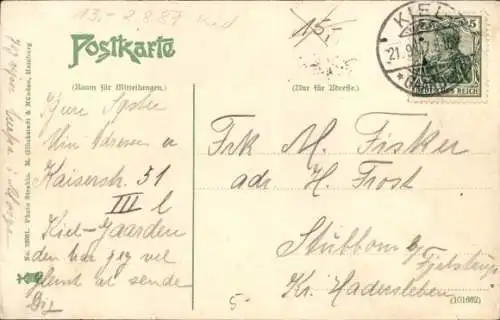 13.- 2.8.87
15,-
Postkarte
(Raum für Mitteilungen.)
(Nur für Adresse.)
KIEL
21.9.
5
DEUTSCHES REICH
Kjære Søster
Min Adresse er
Kaiserstr. 51
III l
Kiel-Gaarden
den har jeg vel
glemt at sende
Dig
Frk M. Fisker
adr. H. Frost
Stubbom b/
Fjelstrup
Kr. Hadersleben
5.
(101662)
M. Glückstadt & Münden, Hamburg